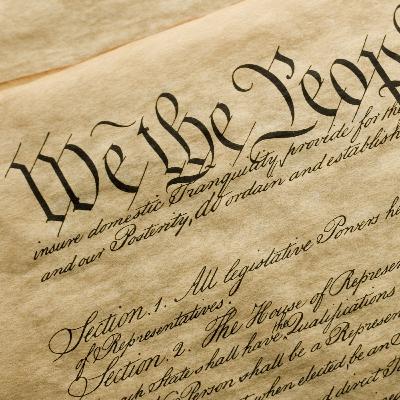 We the Peop
insure domestic Tranquility, provide for the
and our Posterity, do ordain and establish
Section. 1. All legislative Powers he
of Representatives.
Section. 2. The House of Represen
ach State shall have the Qualifications
Person shall be a Represen
when elected, be an
and direct Ta